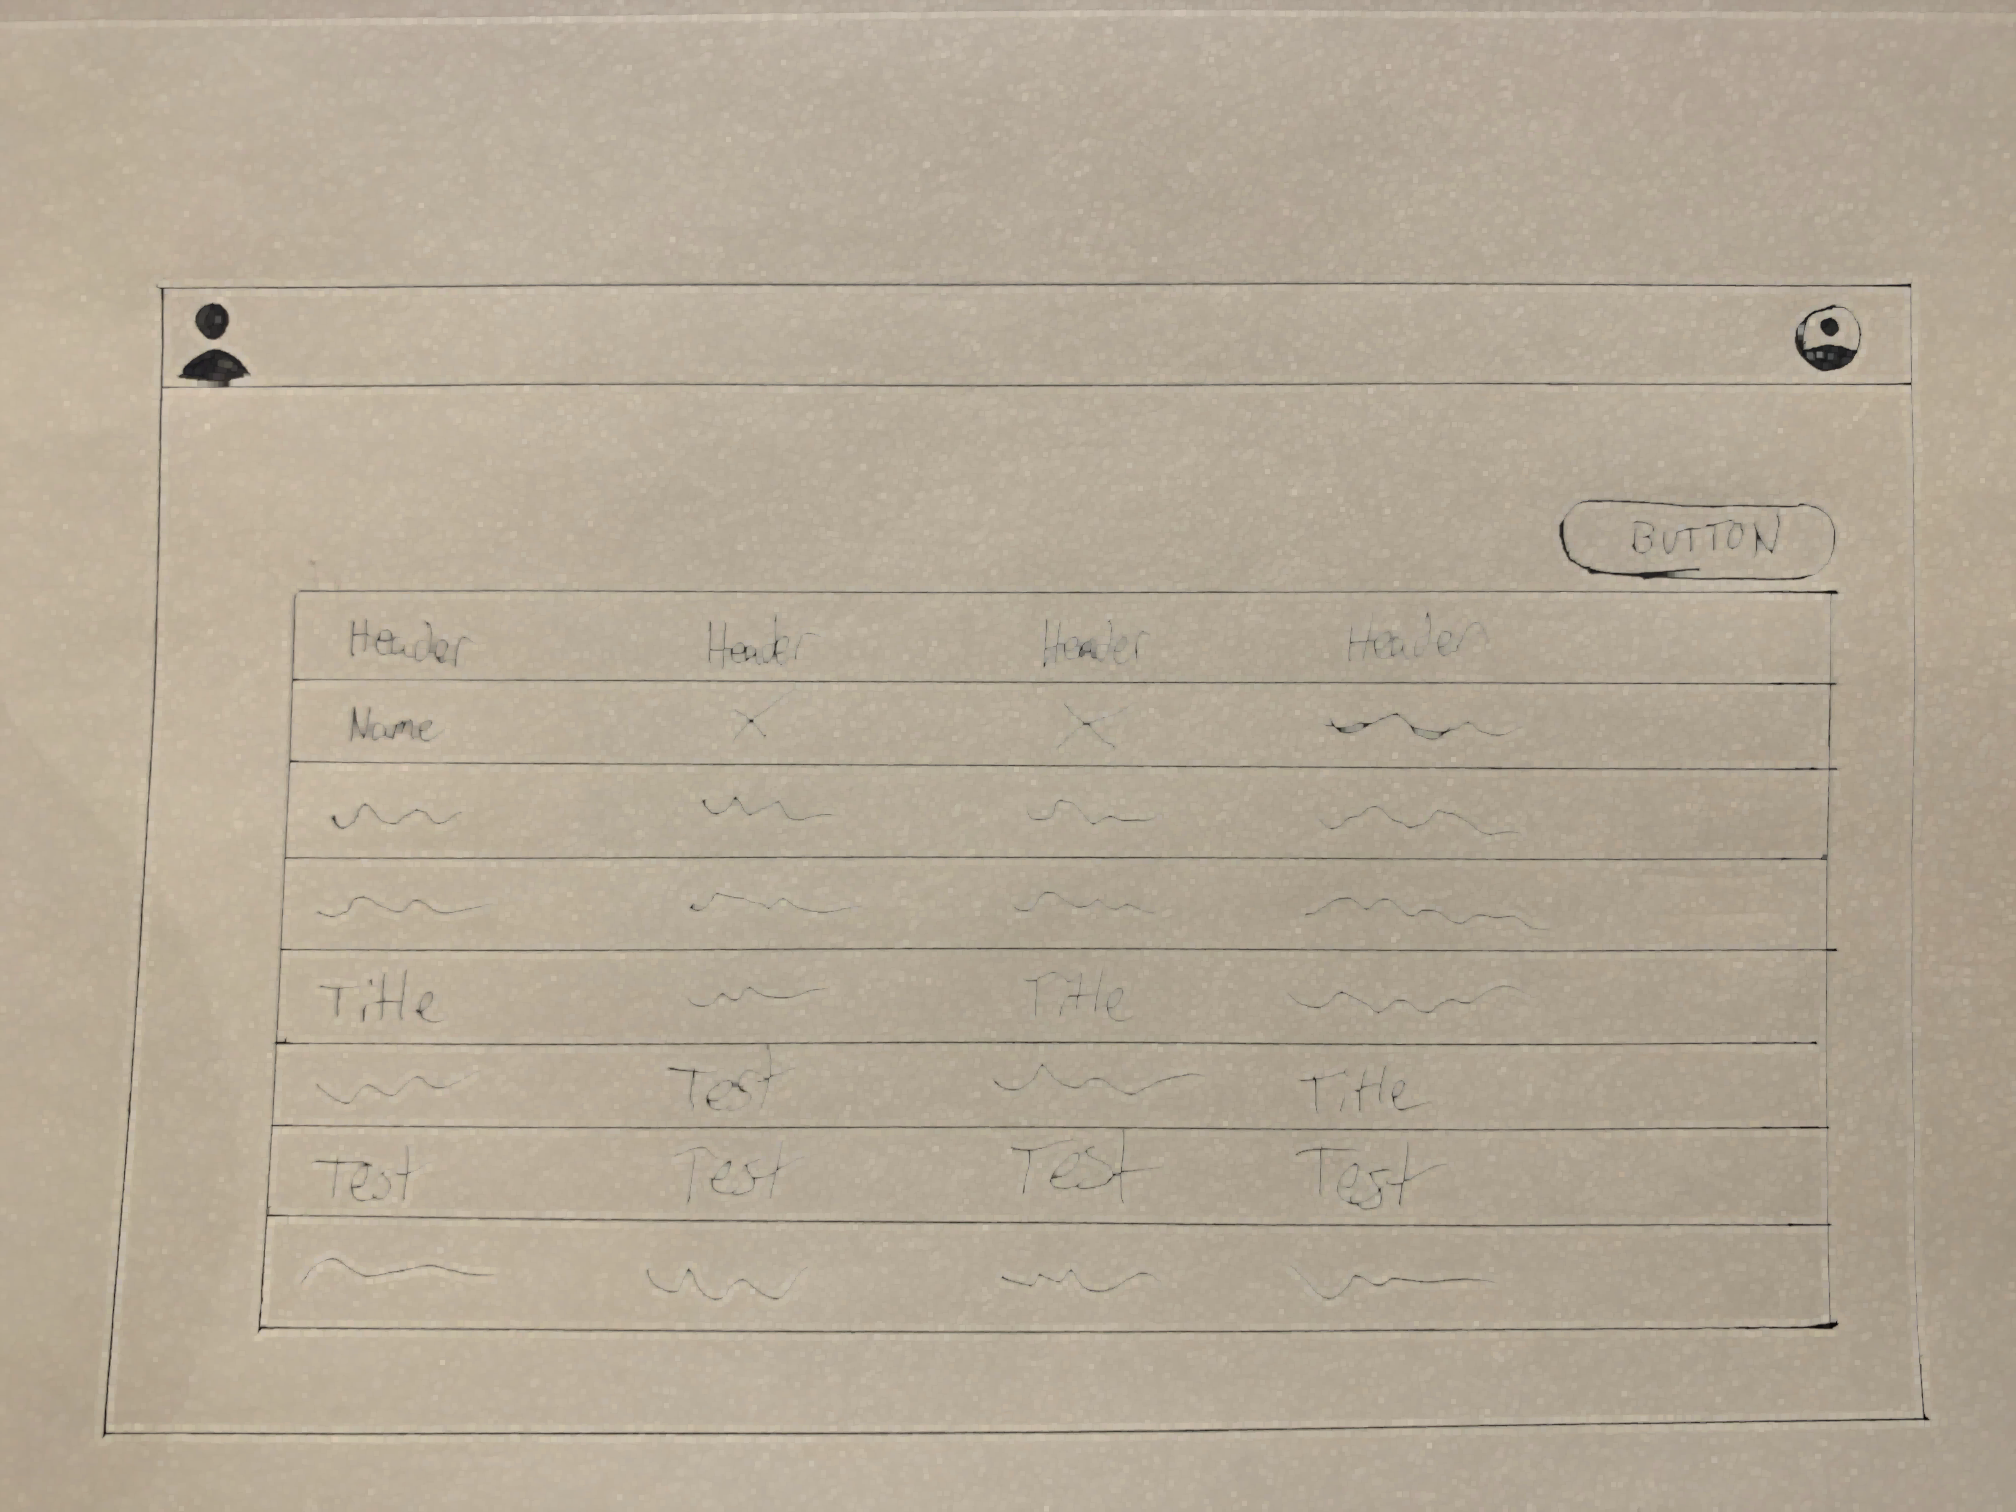 BUTTON
Header Header Header Header
Name X X
Title Title
Test Title
Test Test Test Test